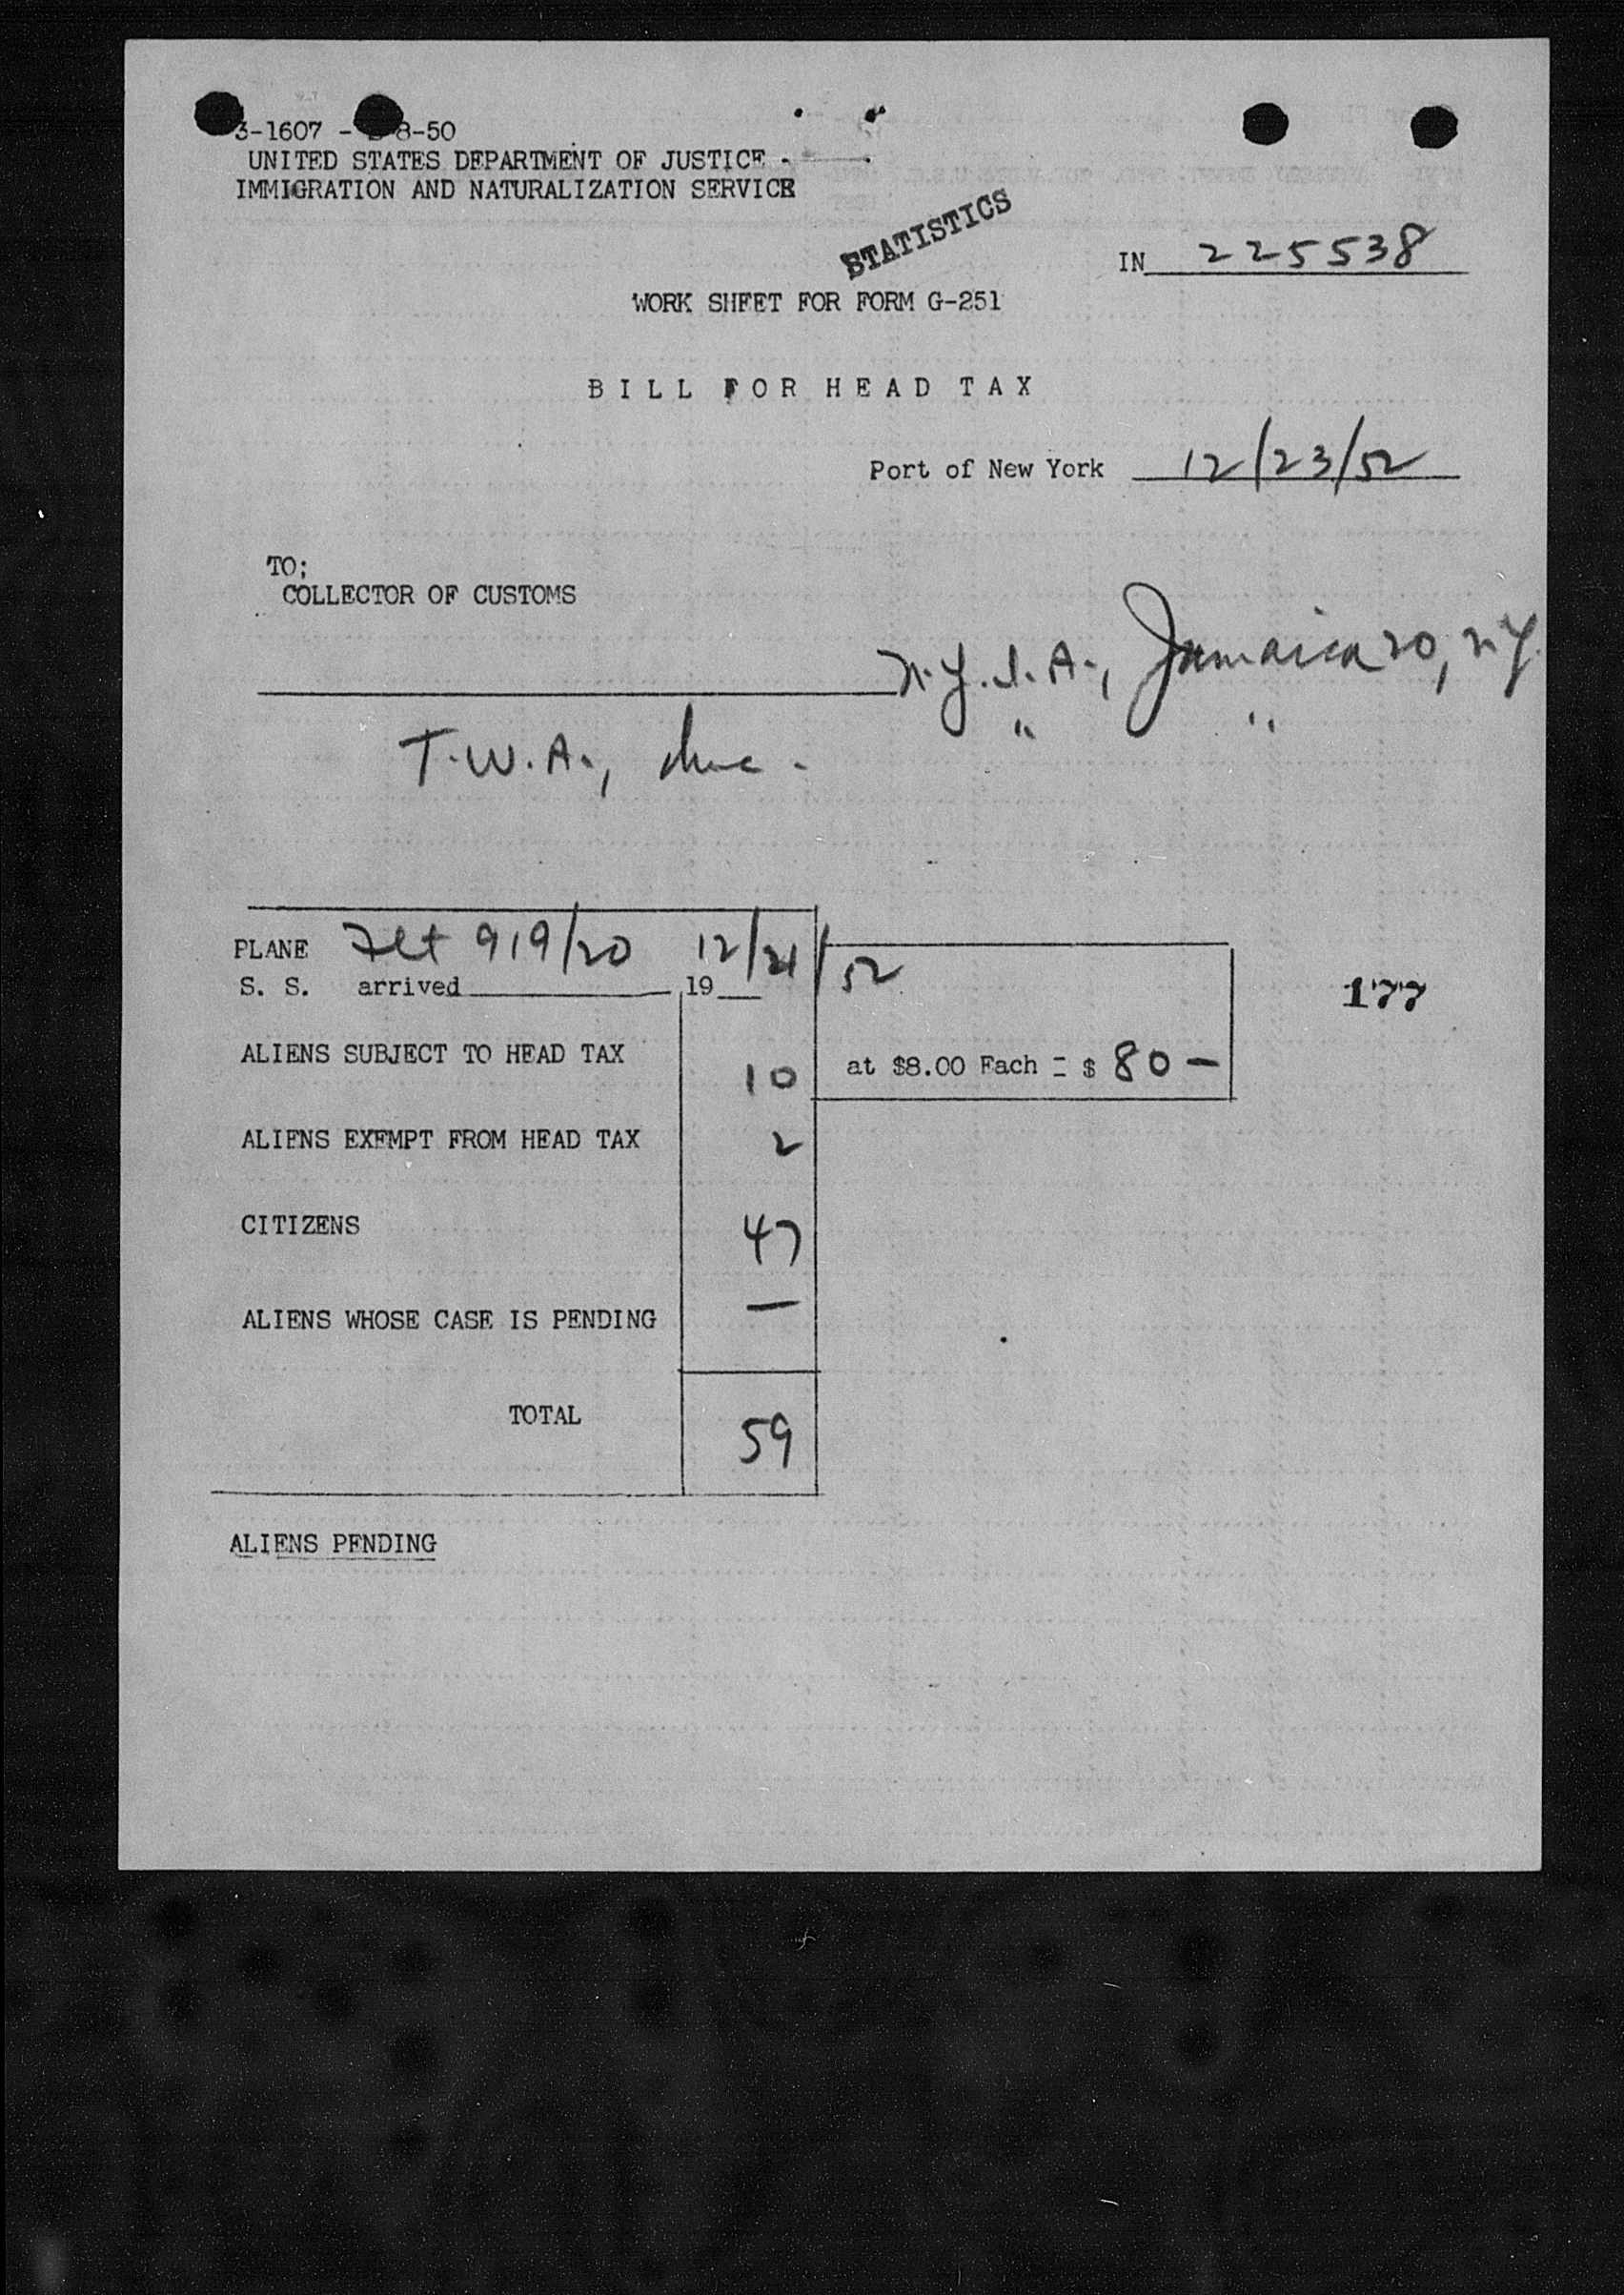 3-1607 - 8-50
UNITED STATES DEPARTMENT OF JUSTICE -
IMMIGRATION AND NATURALIZATION SERVICE
STATISTICS
IN 225538
WORK SHEET FOR FORM G-251
BILL FOR HEAD TAX
Port of New York 12/23/52
TO;
COLLECTOR OF CUSTOMS
N.Y.I.A., Jamaica 20, N.Y.
T.W.A., Inc. " "
PLANE Flt 919/20 12/21/52
S. S. arrived 19
177
ALIENS SUBJECT TO HEAD TAX 10 at $8.00 Each = $ 80 —
ALIENS EXEMPT FROM HEAD TAX 2
CITIZENS 47
ALIENS WHOSE CASE IS PENDING —
TOTAL 59
ALIENS PENDING